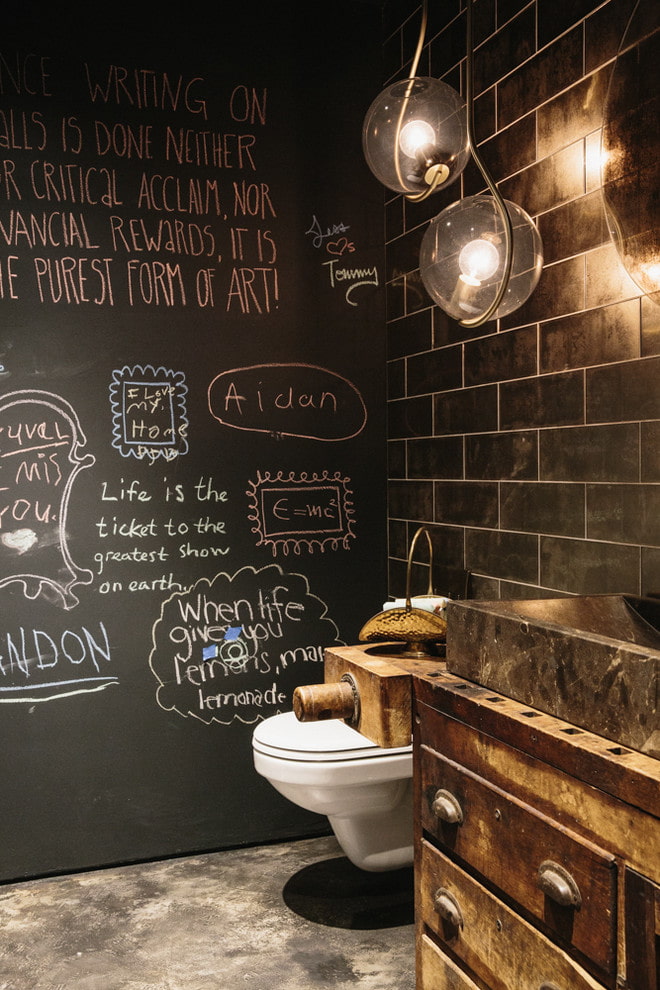 NCE WRITING ON
ALLS IS DONE NEITHER
R CRITICAL ACCLAIM, NOR
NANCIAL REWARDS, IT IS
HE PUREST FORM OF ART!
Jess
s
Tommy
I Love
my
Home
Aidan
uval
I mis
you.
E=mc²
Life is the
ticket to the
greatest show
on earth.
When life
gives you
lemons, mak
lemonade
ANDON